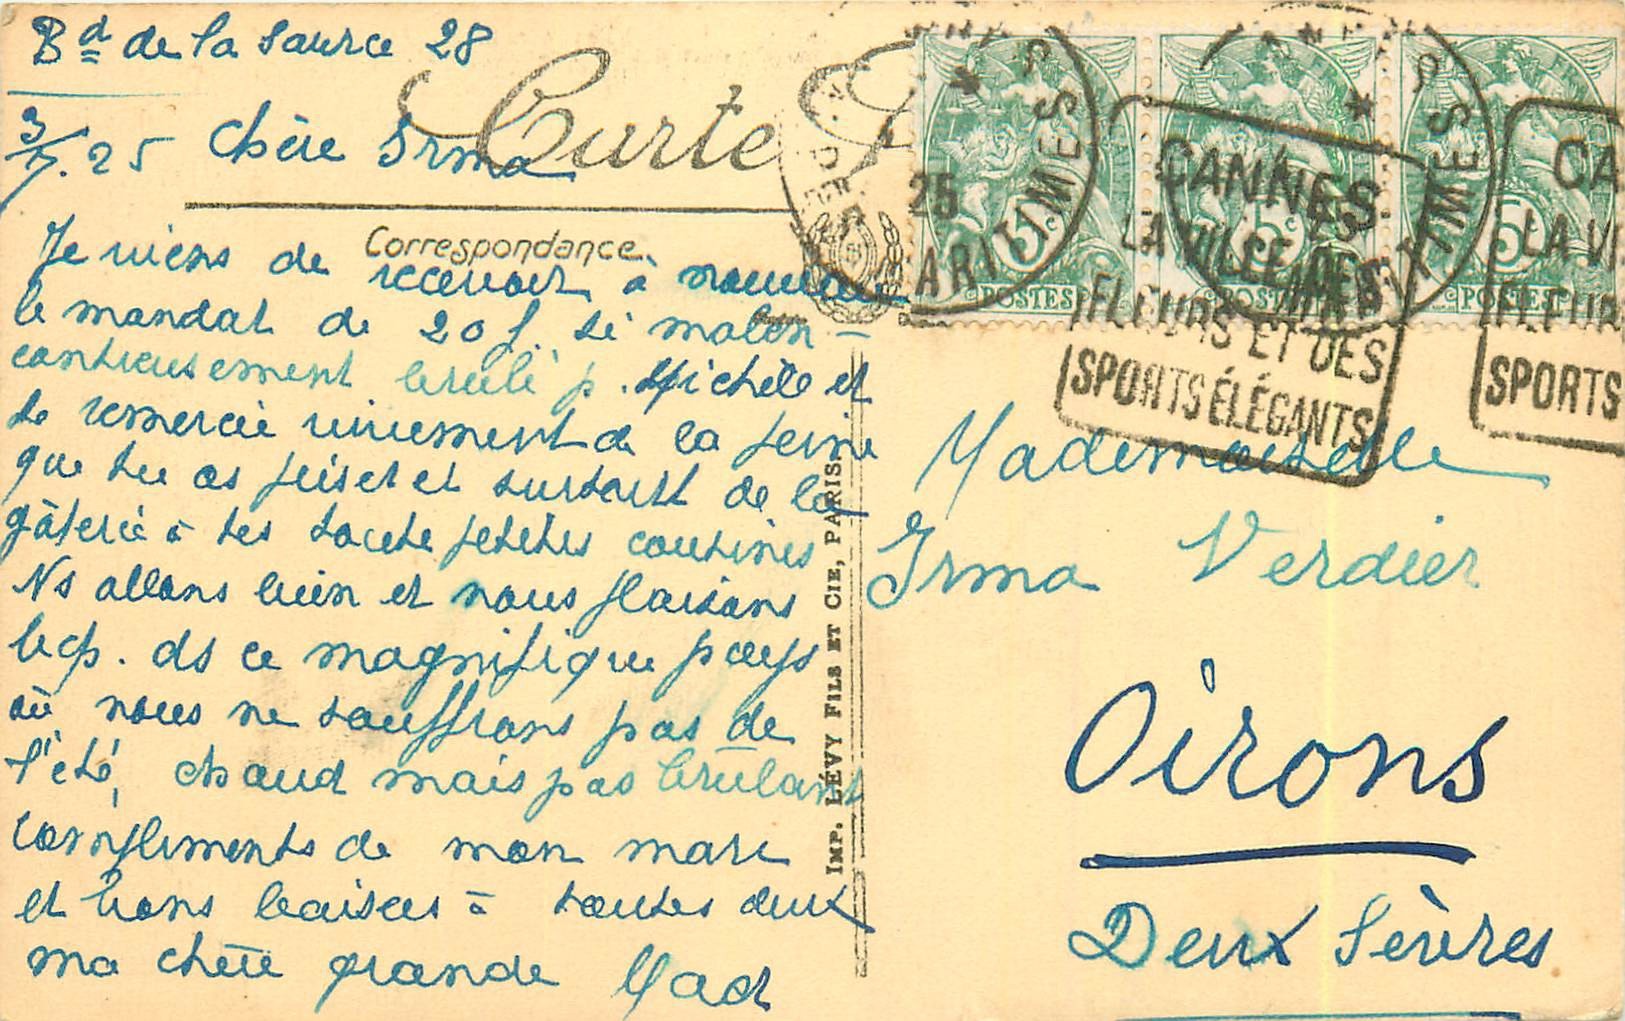 Bd de la Source 28
3/7.25 Chère Irma
Carte
Correspondance
Je viens de recevoir à nouveau
le mandat de 20 f. si malen-
contreusement brulé p. Michèle et
te remercie vivement de la peine
que tu as prise et surtout de la
gâterie à tes toute petites cousines
Ns allons bien et nous plaisons
bcp. ds ce magnifique pays
où nous ne souffrons pas de
l'été, chaud mais pas brulant
compliments de mon mari
et bons baisers à toutes deux
ma chère grande Mad
IMP. LÉVY FILS ET CIE, PARIS
5c 5c 5c
POSTES POSTES POSTES
25
ARITIMES
CANNES
LA VILLE DES
FLEURS ET DES
SPORTS ÉLÉGANTS
CA
LA VI
FLEUR
SPORTS
Mademoiselle
Irma Verdier
Oirons
Deux Sèvres